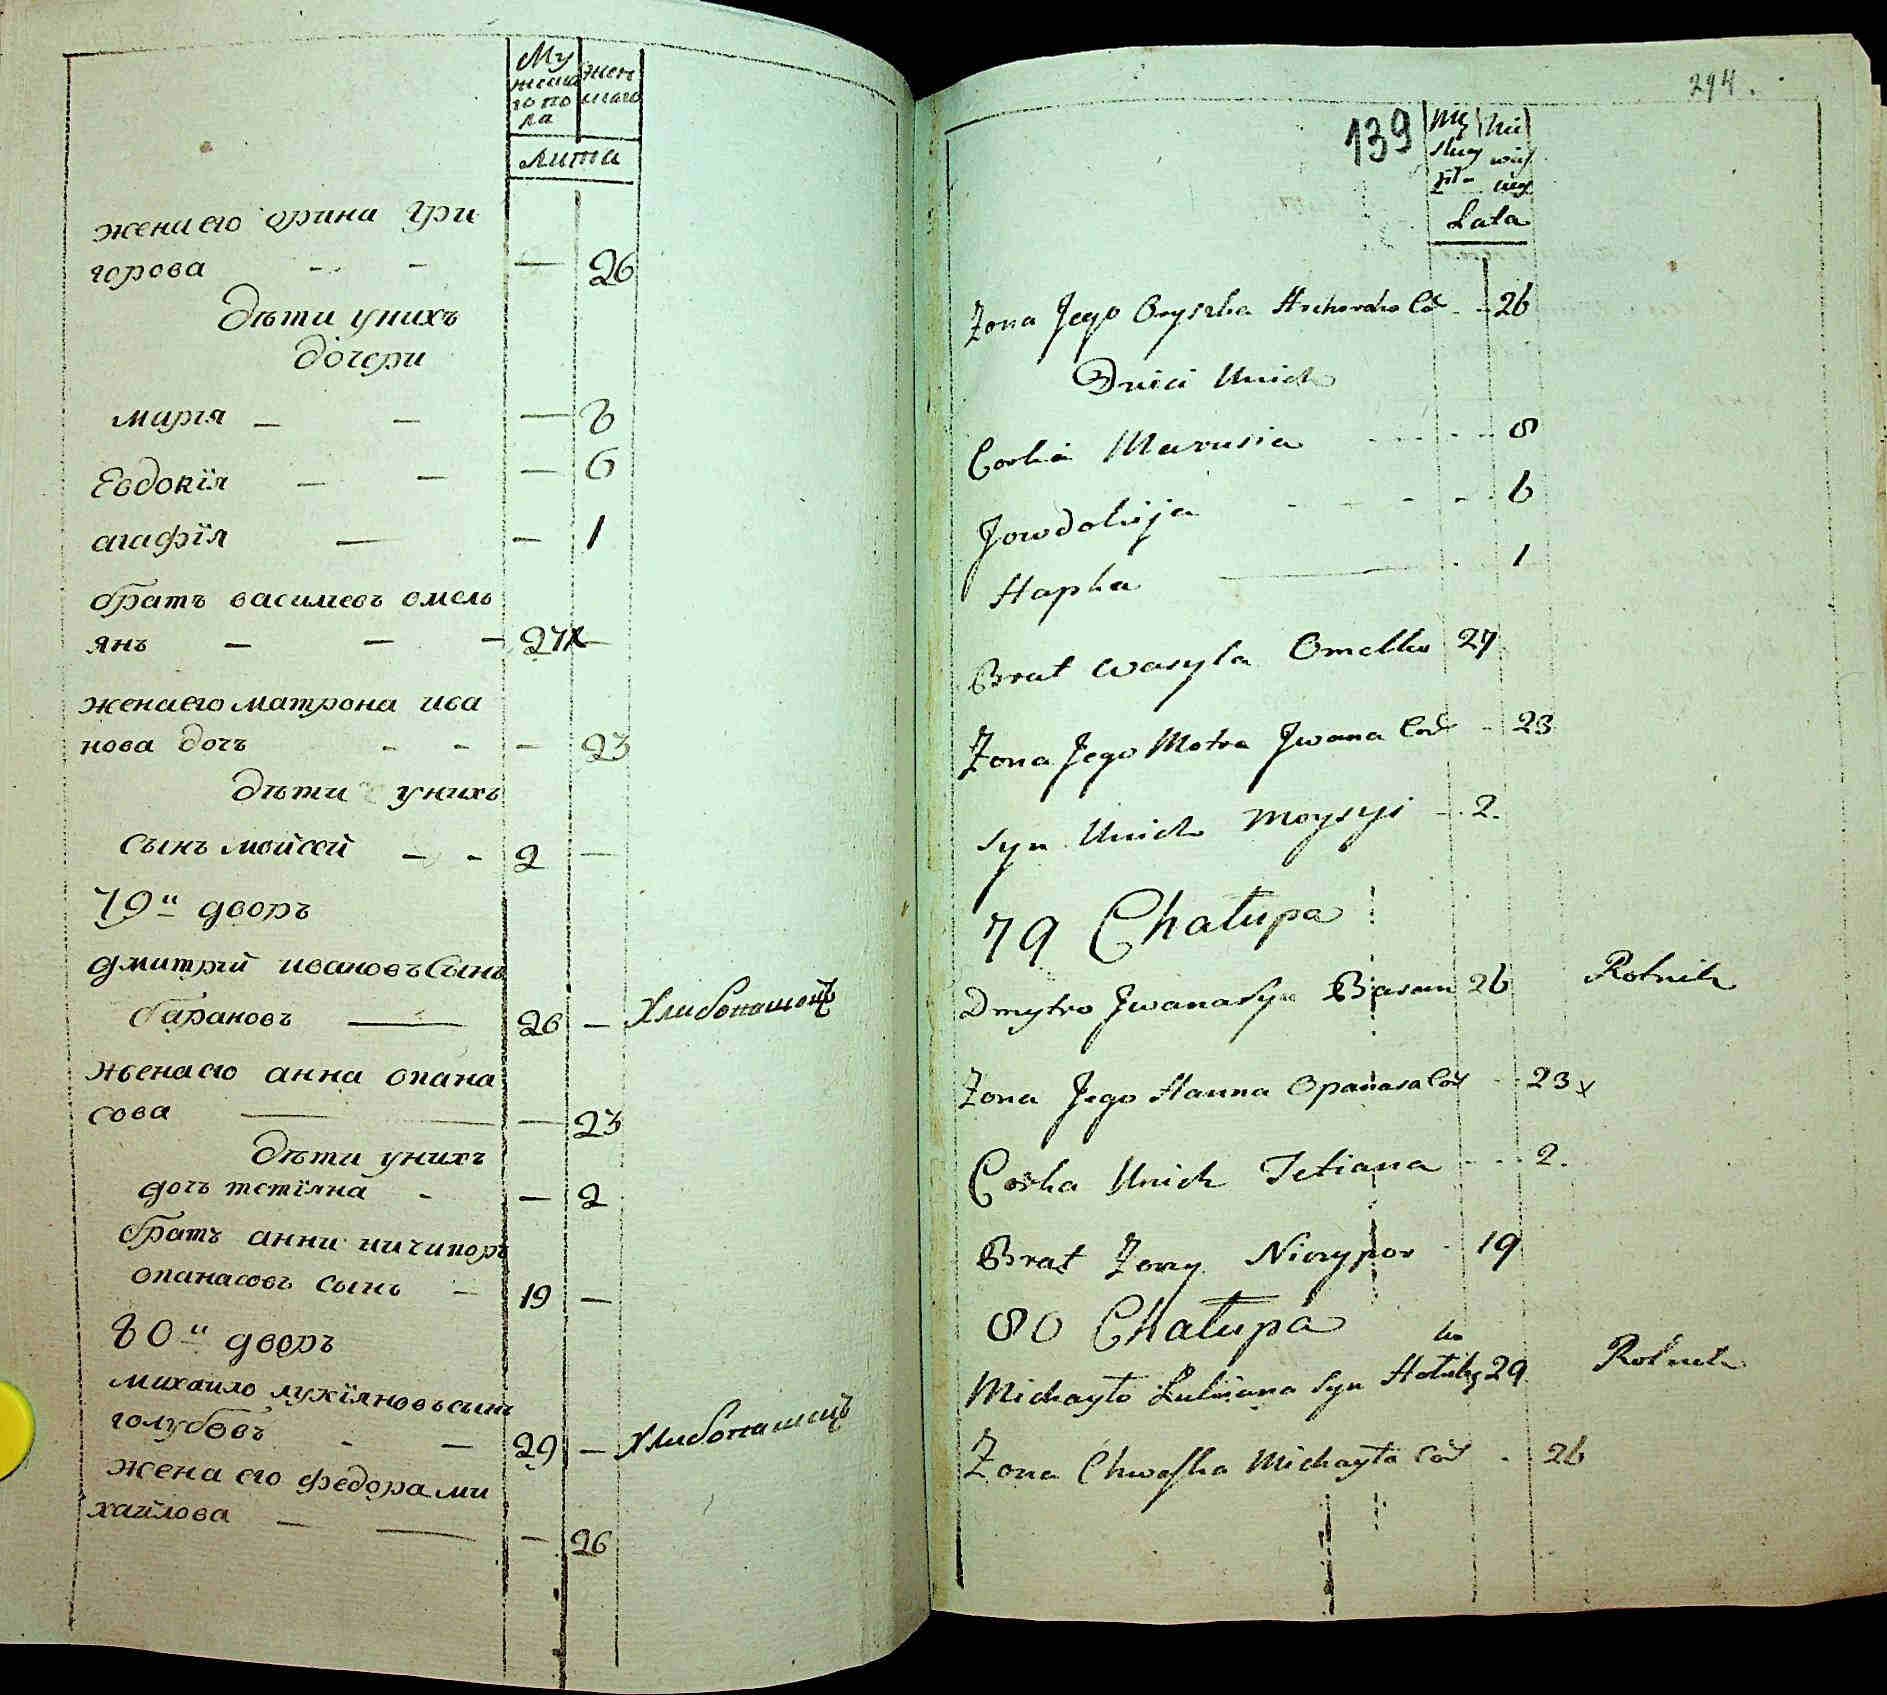 Му жен
жеска скаго
го по
ла
лита
жена его орина гри
горова - - — 26
дѣти унихъ
дочери
марія — — — 8
Евдокія — — — 6
агафія — — 1
братъ василіевъ омель
янъ — — — 27 —
жена его матрона ива
нова дочь - - — 23
дѣти унихъ
сынъ мойсей — - 2 —
79й дворъ
дмитрій ивановъ сынъ
барановъ — 26 — Хлибопашецъ
жена его анна опана
сова — — 23
дѣти унихъ
дочь тетіяна - — 2
братъ анни ничипоръ
опанасовъ сынъ — 19 —
80й дворъ
михаило лукіяновъ сынъ
голубовъ - — 29 — хлибопашецъ
жена его федора ми
хайлова — — — 26
294.
139
Lata
Zona Jego Oryszka Hrehorcha Cór - - 26
Dzieci Unich
Corka Marusia - - - - - 8
Jowdokija - - - - - 6
Hapka — - 1
Brat Wasyla Omelko 27
Zona Jego Motra Jwana Cór - 23
Syn Unich Moysyi - 2.
79 Chałupa
Dmytro Jwana Syn Baran 26 Rolnik
Zona Jego Hanna Opanasa Cór - - 23 x
Corka Unich Tetiana - - - 2.
Brat Zony Niczypor - 19
80 Chałupa
Michayło Lukiana Syn Hołub 29 Rolnik
Zona Chweska Michayła Cór - 26